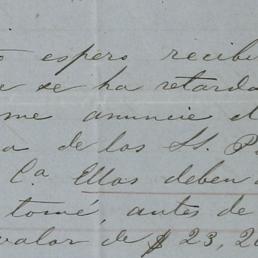 espero recibi
se ha retarda
me anuncie el
a de los SS. P
Ca. Ellos deben
tomé, antes de
valor de $ 23, 20